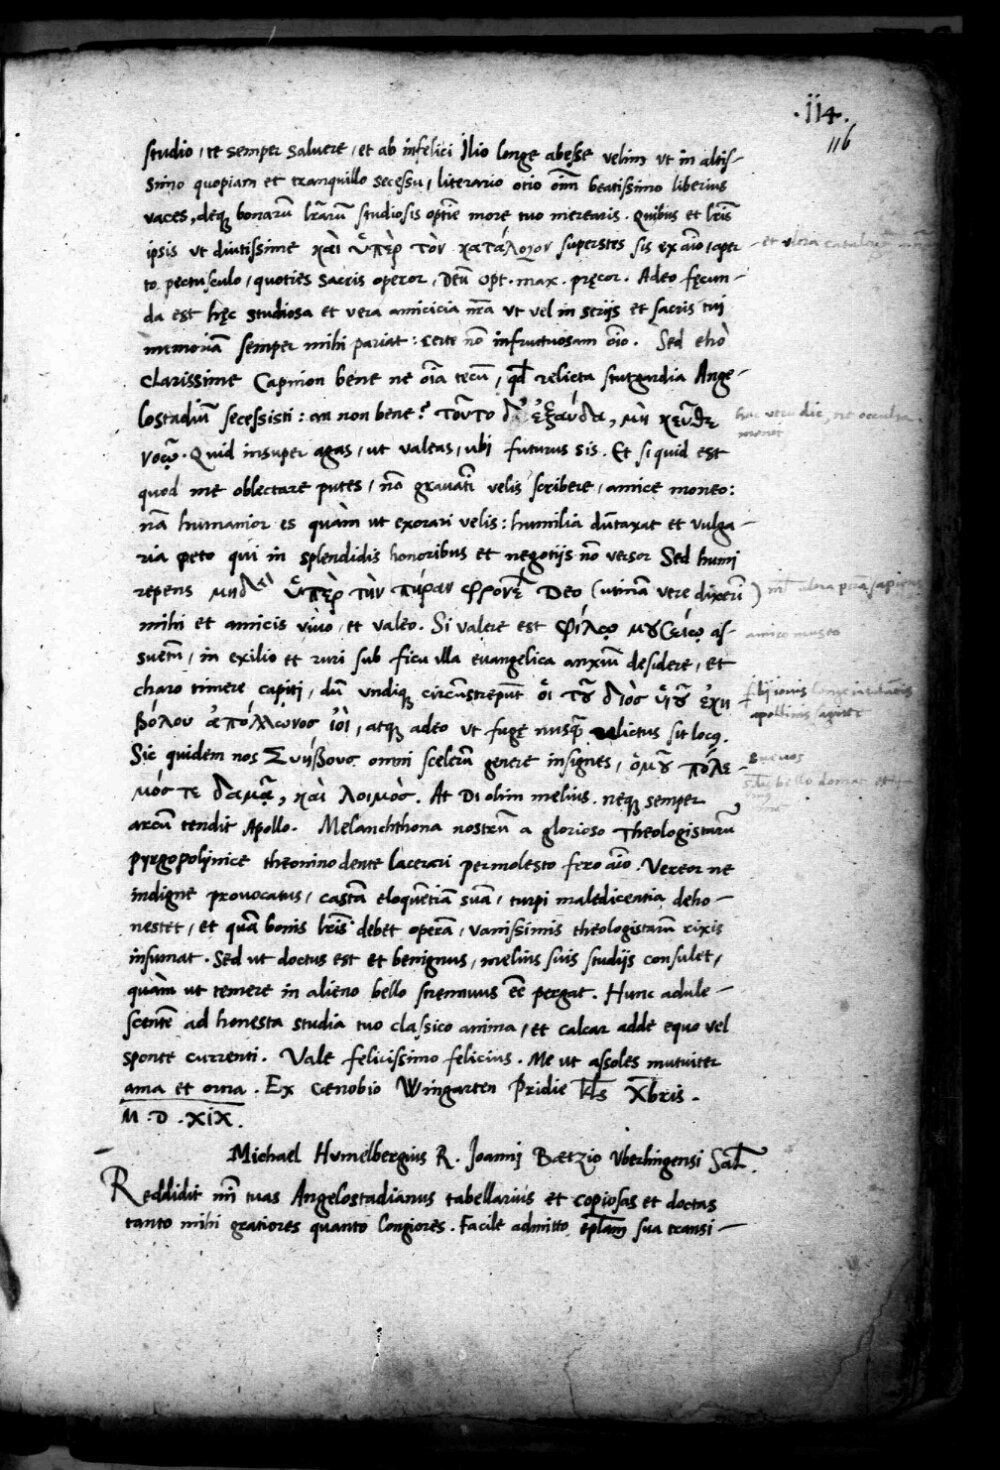 .114.
116
studio, te semper saluere, et ab infelici Ilio longe abesse velim ut in altis-
simo quopiam et tranquillo secessu, literario otio oīm beatissimo liberius
vaces, deq; bonarū lrarū studiosis optīe more tuo merearis. Quibus et lris
ipsis ut diutissime καὶ ὑπὲρ τὸν κατάλογον superstes sis ex aīo, aper-
to pectusculo, quoties sacris operor, Deū Opt. max. pręcor. Adeo fęcun-
da est hęc studiosa et vera amicicia nr̄a ut vel in serijs et sacris tui
memoriā semper mihi pariat: certe nō infructuosam oīo. Sed eho
clarissime Capnion bene ne oīa tecū, qd relicta stutgardia Ange-
lostadiū secessisti: an non bene? τοῦτο δ' ἐξαύδα, μὴ κεῦθε
νοῷ. Quid insuper agas, ut valeas, ubi futurus sis. Et si quid est
quod me oblectare putes, nō gravatī velis scribere, amice moneo:
nā humanior es quàm ut exorari velis: humilia dūtaxat et vulga-
ria peto qui in splendidis honoribus et negotijs nō versor Sed humi
repens μηδὲ ὑπὲρ τὴν πήραν φρονέ Deo (utinā vere dixeri)
mihi et amicis vivo, et valeo. Si valere est φίλῳ μουσείῳ as-
suetū, in exilio et ruri sub ficu illa euangelica anxiū desidere, et
charo timere capiti, dū undiq; circūstrepūt οἱ τοῦ διὸς υἱοῦ ἐκη
βόλου ἀπόλλωνος ἰοὶ, atq; adeo ut fugę nusq̄ relictus sit locq.
Sic quidem nos Συήβους omni scelerū genere insignes, ὁμοῦ πόλε-
μός τε δαμᾷ, καὶ λοιμὸς. At Di olim melius. neq; semper
arcū tendit Apollo. Melanchthona nostrū a glorioso Theologistarū
pyrgopolijnice theonino dente lacerari permolesto fero aīo. Vereor ne
indigne provocatus, castā eloquētiā suā, turpi maledicentia deho-
nestet, et quā bonis lris debet operā, vanissimis theologistarū rixis
insumat. Sed ut doctus est et benignus, melius suis studijs consulet,
quàm ut temere in alieno bello strennuus eē pergat. Hunc adule-
scentē ad honesta studia tuo classico anima, et calcar adde equo vel
sponte currenti. Vale felicissimo felicius. Me ut assoles mutuiter
ama et orna. Ex Cœnobio Wingarten Pridie kls Xbris.
M.D.XIX.
Michael Humelbergius R. Joanni Bœtzio Vberlingensi Sal.
Reddidit mī tuas Angelostadianus tabellarius et copiosas et doctas
tanto mihi gratiores quanto longiores. Facile admitto ep̄lam sua transi-
et ultra catalogū
hoc vero dic, ne occulta
amico museo
filij iovis longe iaculantis
apollinis sagittę
Suevos